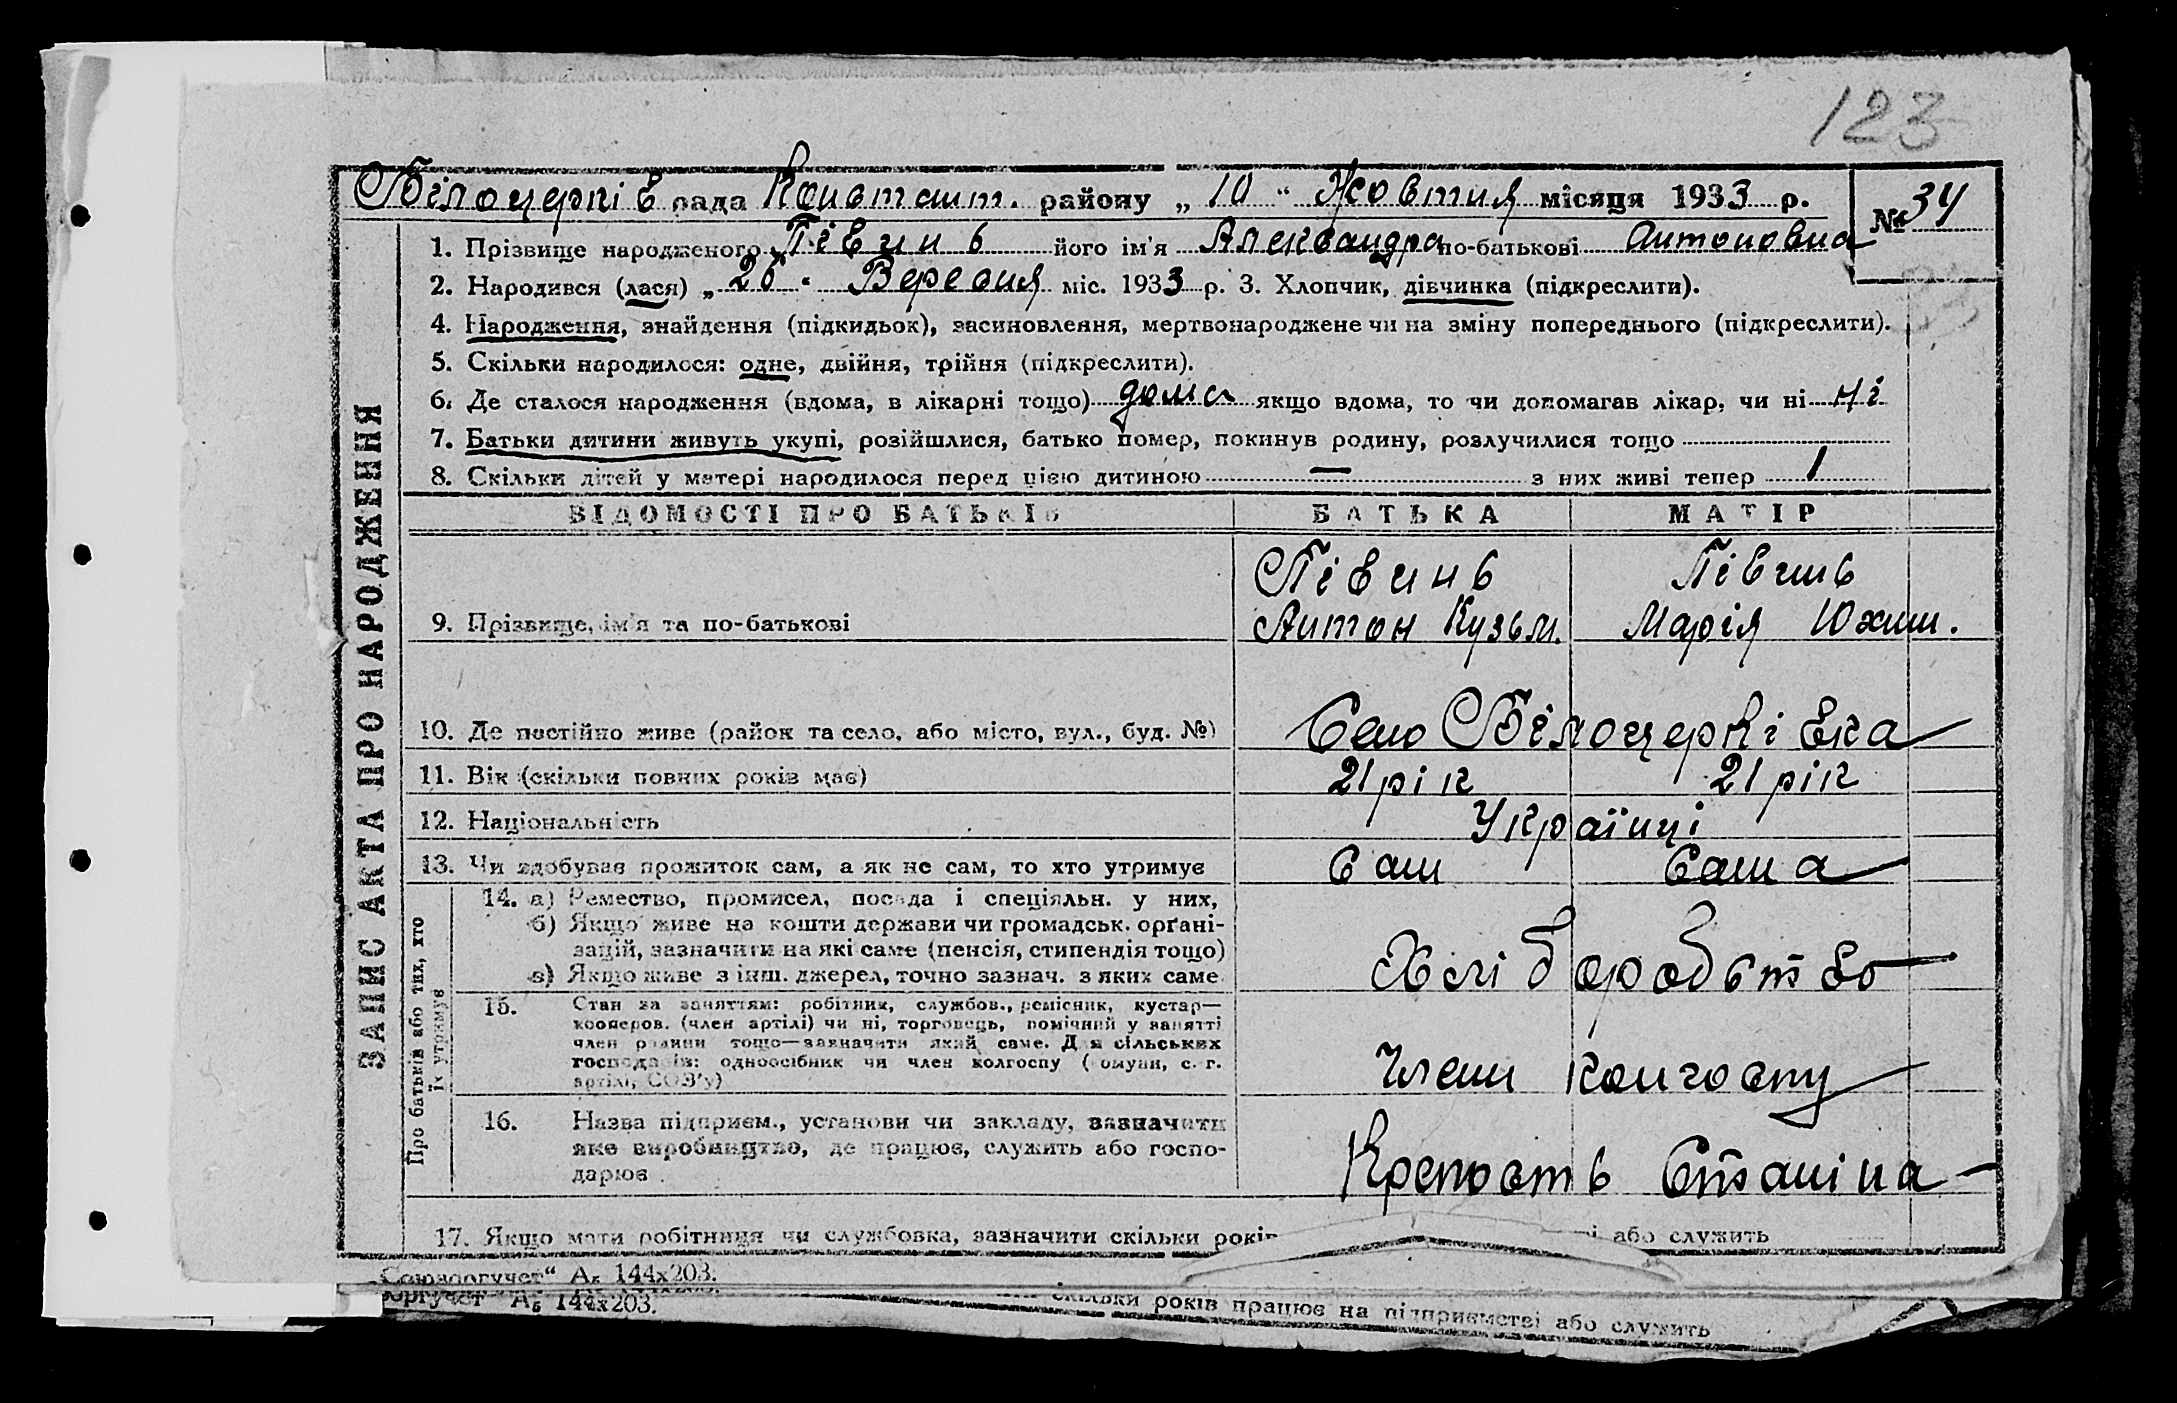 123
Білоцерків рада Конвташт. району „ 10 “ Жовтня місяця 1933 р. № 34
1. Прізвище народженого Півинь його ім'я Александра по-батькові Антоновна
2. Народився (лася) „ “ Вересня міс. 1933 р. 3. Хлопчик, дівчинка (підкреслити).
4. Народження, знайдення (підкидьок), засиновлення, мертвонароджене чи на зміну попереднього (підкреслити).
5. Скільки народилося: одне, двійня, трійня (підкреслити).
6. Де сталося народження (вдома, в лікарні тощо) дома якщо вдома, то чи допомагав лікар, чи ні ні
7. Батьки дитини живуть укупі, розійшлися, батько помер, покинув родину, розлучилися тощо
8. Скільки дітей у матері народилося перед цією дитиною — з них живі тепер 1
ЗАПИС АКТА ПРО НАРОДЖЕННЯ
ВІДОМОСТІ ПРО БАТЬКІВ БАТЬКА МАТІР
Півинь Півинь
9. Прізвище, ім'я та по-батькові Антон Кузьм. Марія Юхим.
10. Де постійно живе (район та село, або місто, вул., буд. №) Село Білоцерківка
11. Вік (скільки повних років має) 21 рік 21 рік
12. Національність Українці
13. Чи здобував прожиток сам, а як не сам, то хто утримує Сам Сама
Про батьків або тих, хто їх утримує
14. а) Ремество, промисел, посада і спеціяльн. у них,
б) Якщо живе на кошти держави чи громадськ. органі-
зацій, зазначити на які саме (пенсія, стипендія тощо) Хліборобство
в) Якщо живе з інш. джерел, точно зазнач. з яких саме
15. Стан за заняттям: робітник, службов., ремісник, кустар—
кооперов. (член артілі) чи ні, торговець, помічний у занятті
член родини тощо—зазначити який саме. Для сільських
господарів: одноосібник чи член колгоспу (комуни, с.-г. Члени колгоспу
артілі, СОЗ'у)
16. Назва підприєм., установи чи закладу, зазначити
яке виробництво, де працює, служить або госпо- Крепость Сталіна
дарює
17. Якщо мати робітниця чи службовка, зазначити скільки років або служить
„Союзоргучет“ А₅ 144х203.
оргучет“ А₅ 144х203. скільки років працює на підприємстві або служить